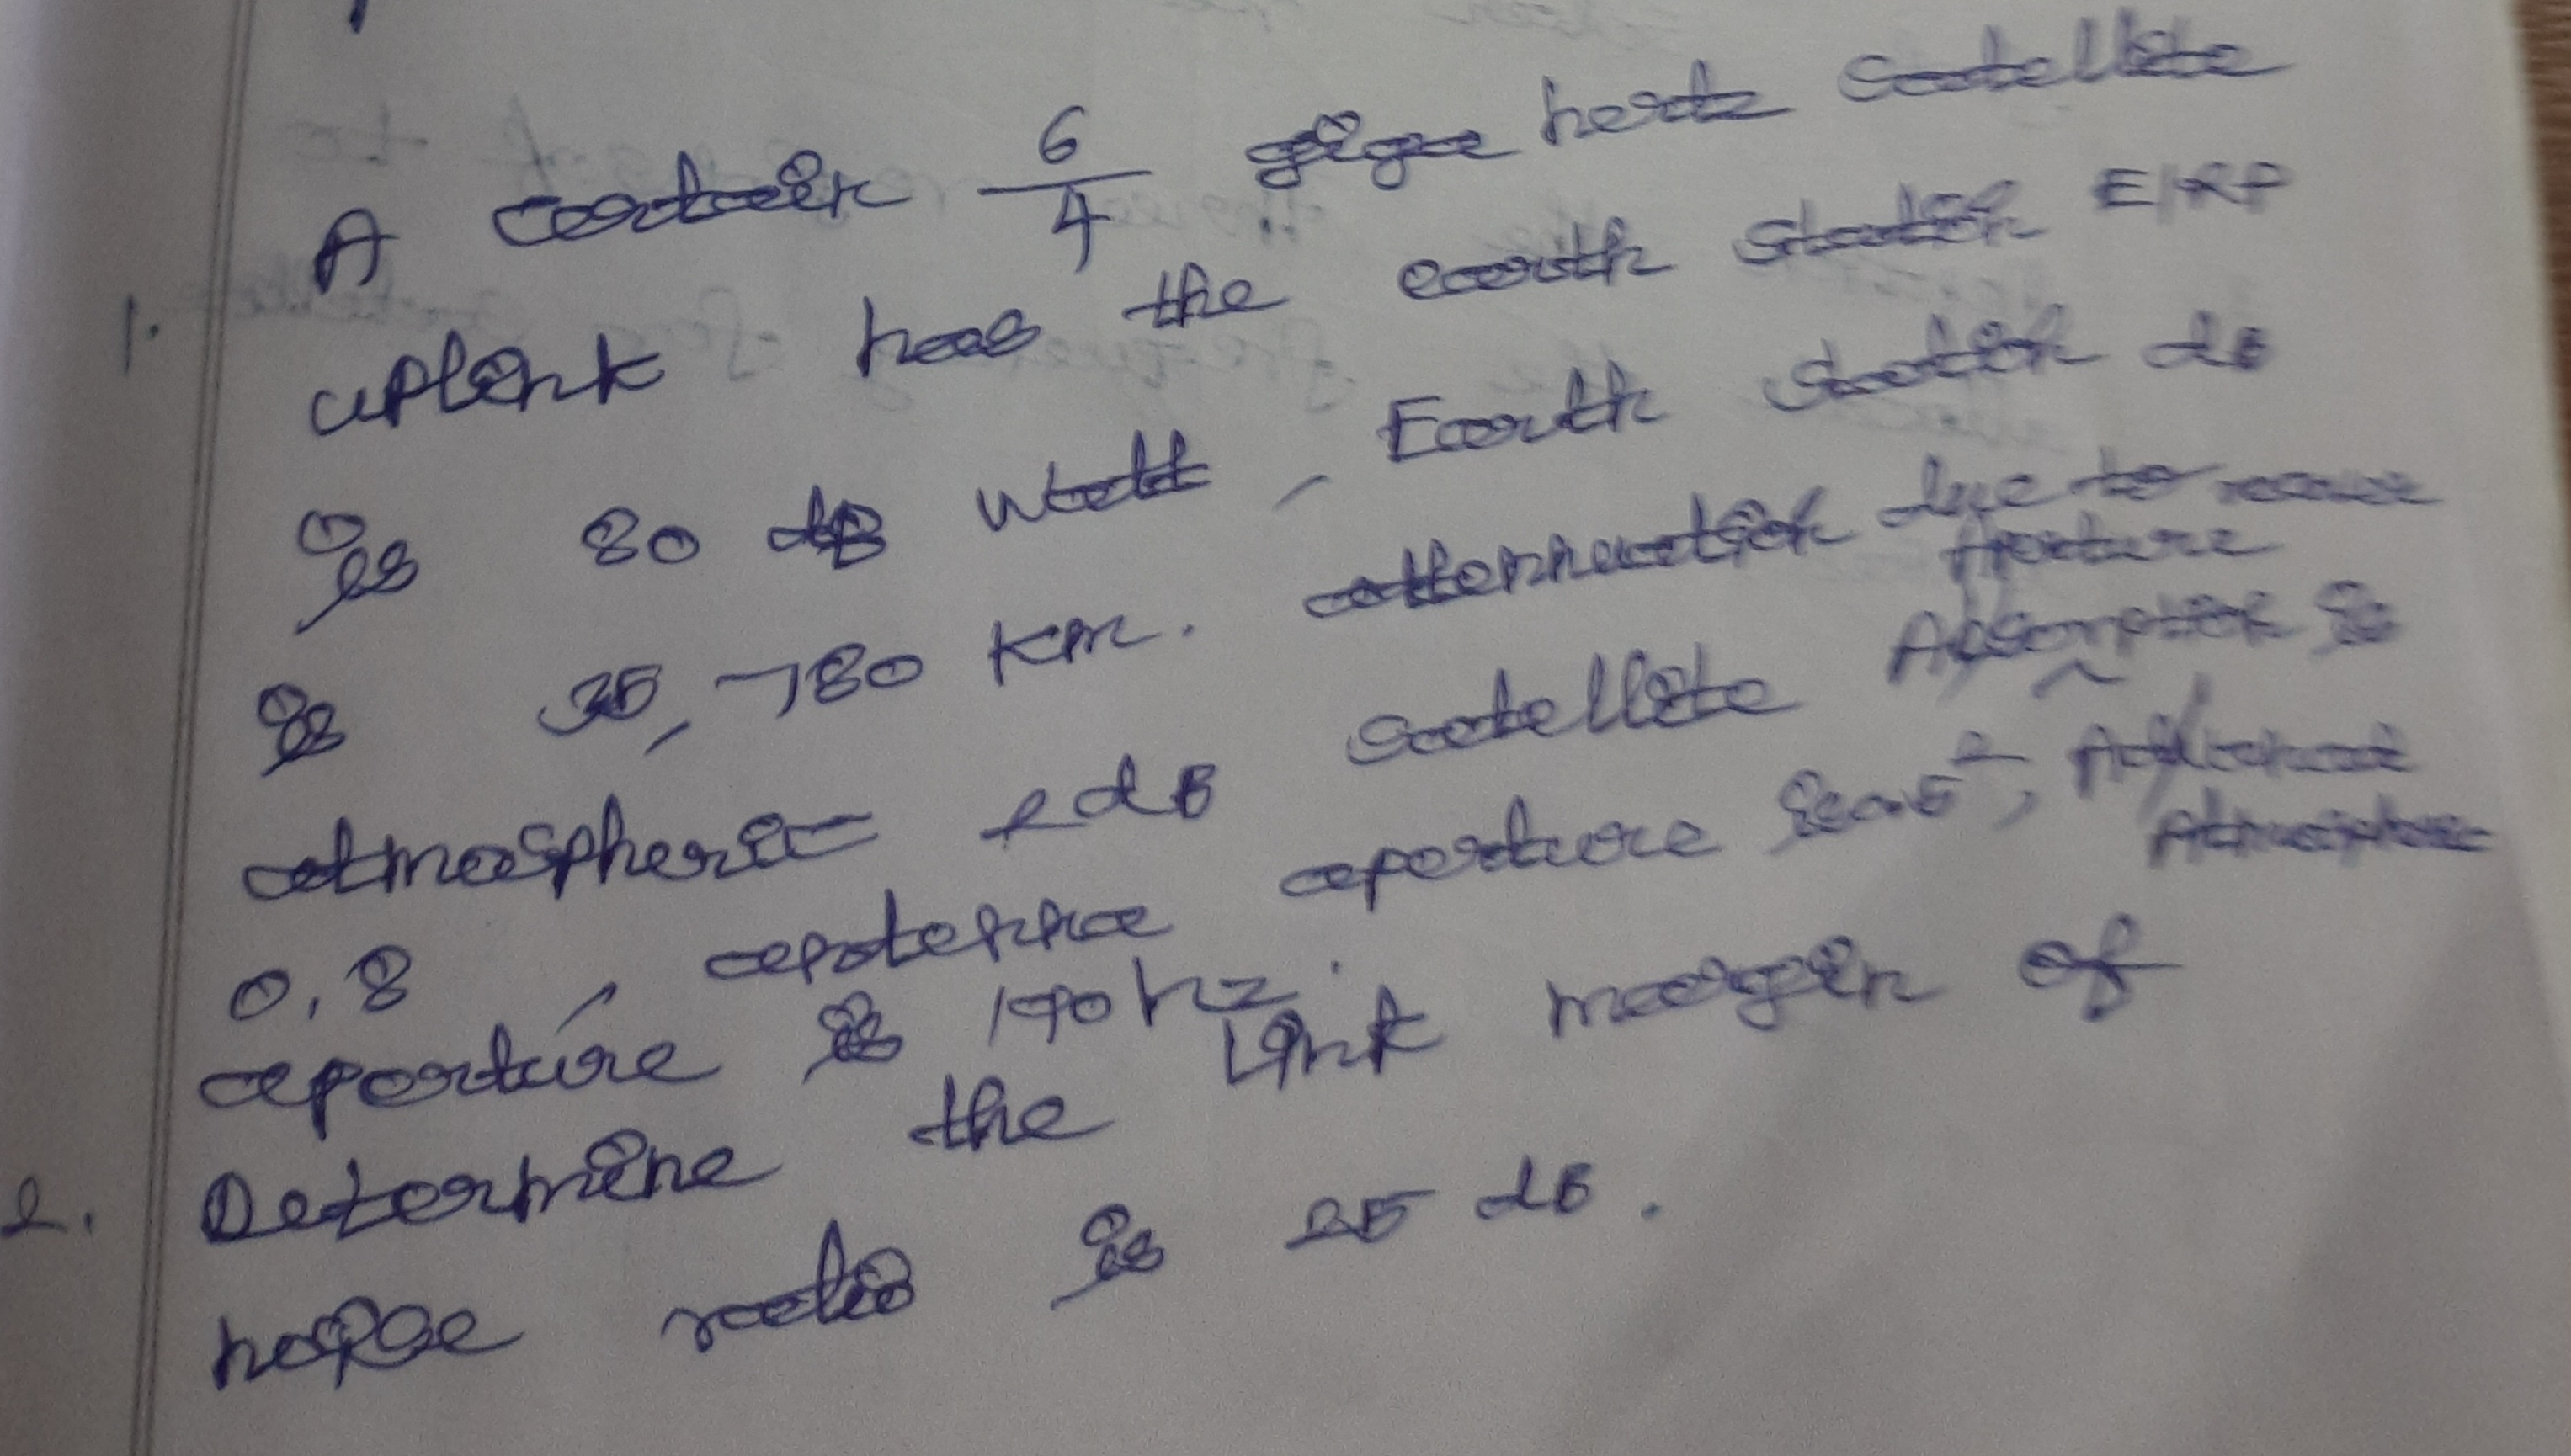 1. A certain 6/4 giga hertz satellite
uplink has the earth station EIRP
is 80 dB Watt, Earth station dB
is 35,780 km. attennuation due to
atmospheric 2 dB satellite Absorption is
0.8, antenna aperture
aperture is 190 hz.
2. Determine the Link margin of
noise ratio is 25 dB.